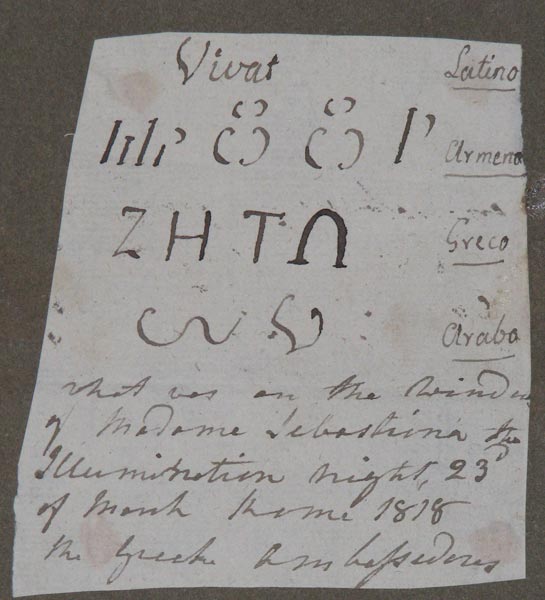 Vivat Latino
Armeno
ΖΗΤΩ Greco
Arabo
what was on the Window
of Madame Sebastiana the
Illumination night, 23d
of March Rome 1818
the Greeke Ambassadores